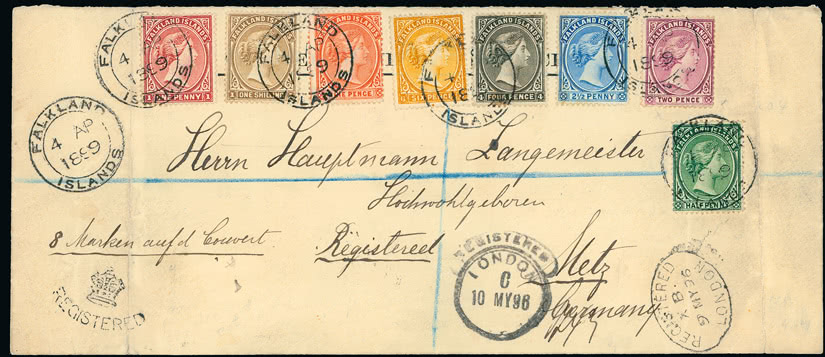 FALKLAND ISLANDS
ONE PENNY 1
FALKLAND ISLANDS
1 ONE SHILLING
FALKLAND ISLANDS
PENCE
FALKLAND ISLANDS
FALKLAND ISLANDS
FOUR PENCE 4
FALKLAND ISLANDS
2½ PENNY
FALKLAND ISLANDS
TWO PENCE
FALKLAND
4 AP
1899
ISLANDS
FALKLAND
4 AP
ISLANDS
FALKLAND
4 AP
1899
ISLANDS
ISLANDS
FALKLAND ISLANDS
HALF PENNY
Herrn Hauptmann Langemeister
Hochwohlgeboren
8 Marken auf d Couvert.
Registered
Metz
Germany
REGISTERED
LONDON
C
10 MY 96
REGISTERED
REGISTERED
LONDON
9 MY 96
B